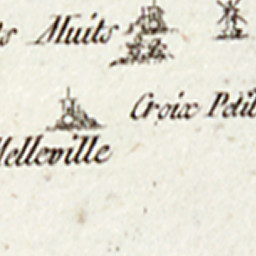 Muits
Croix Petit
Melleville